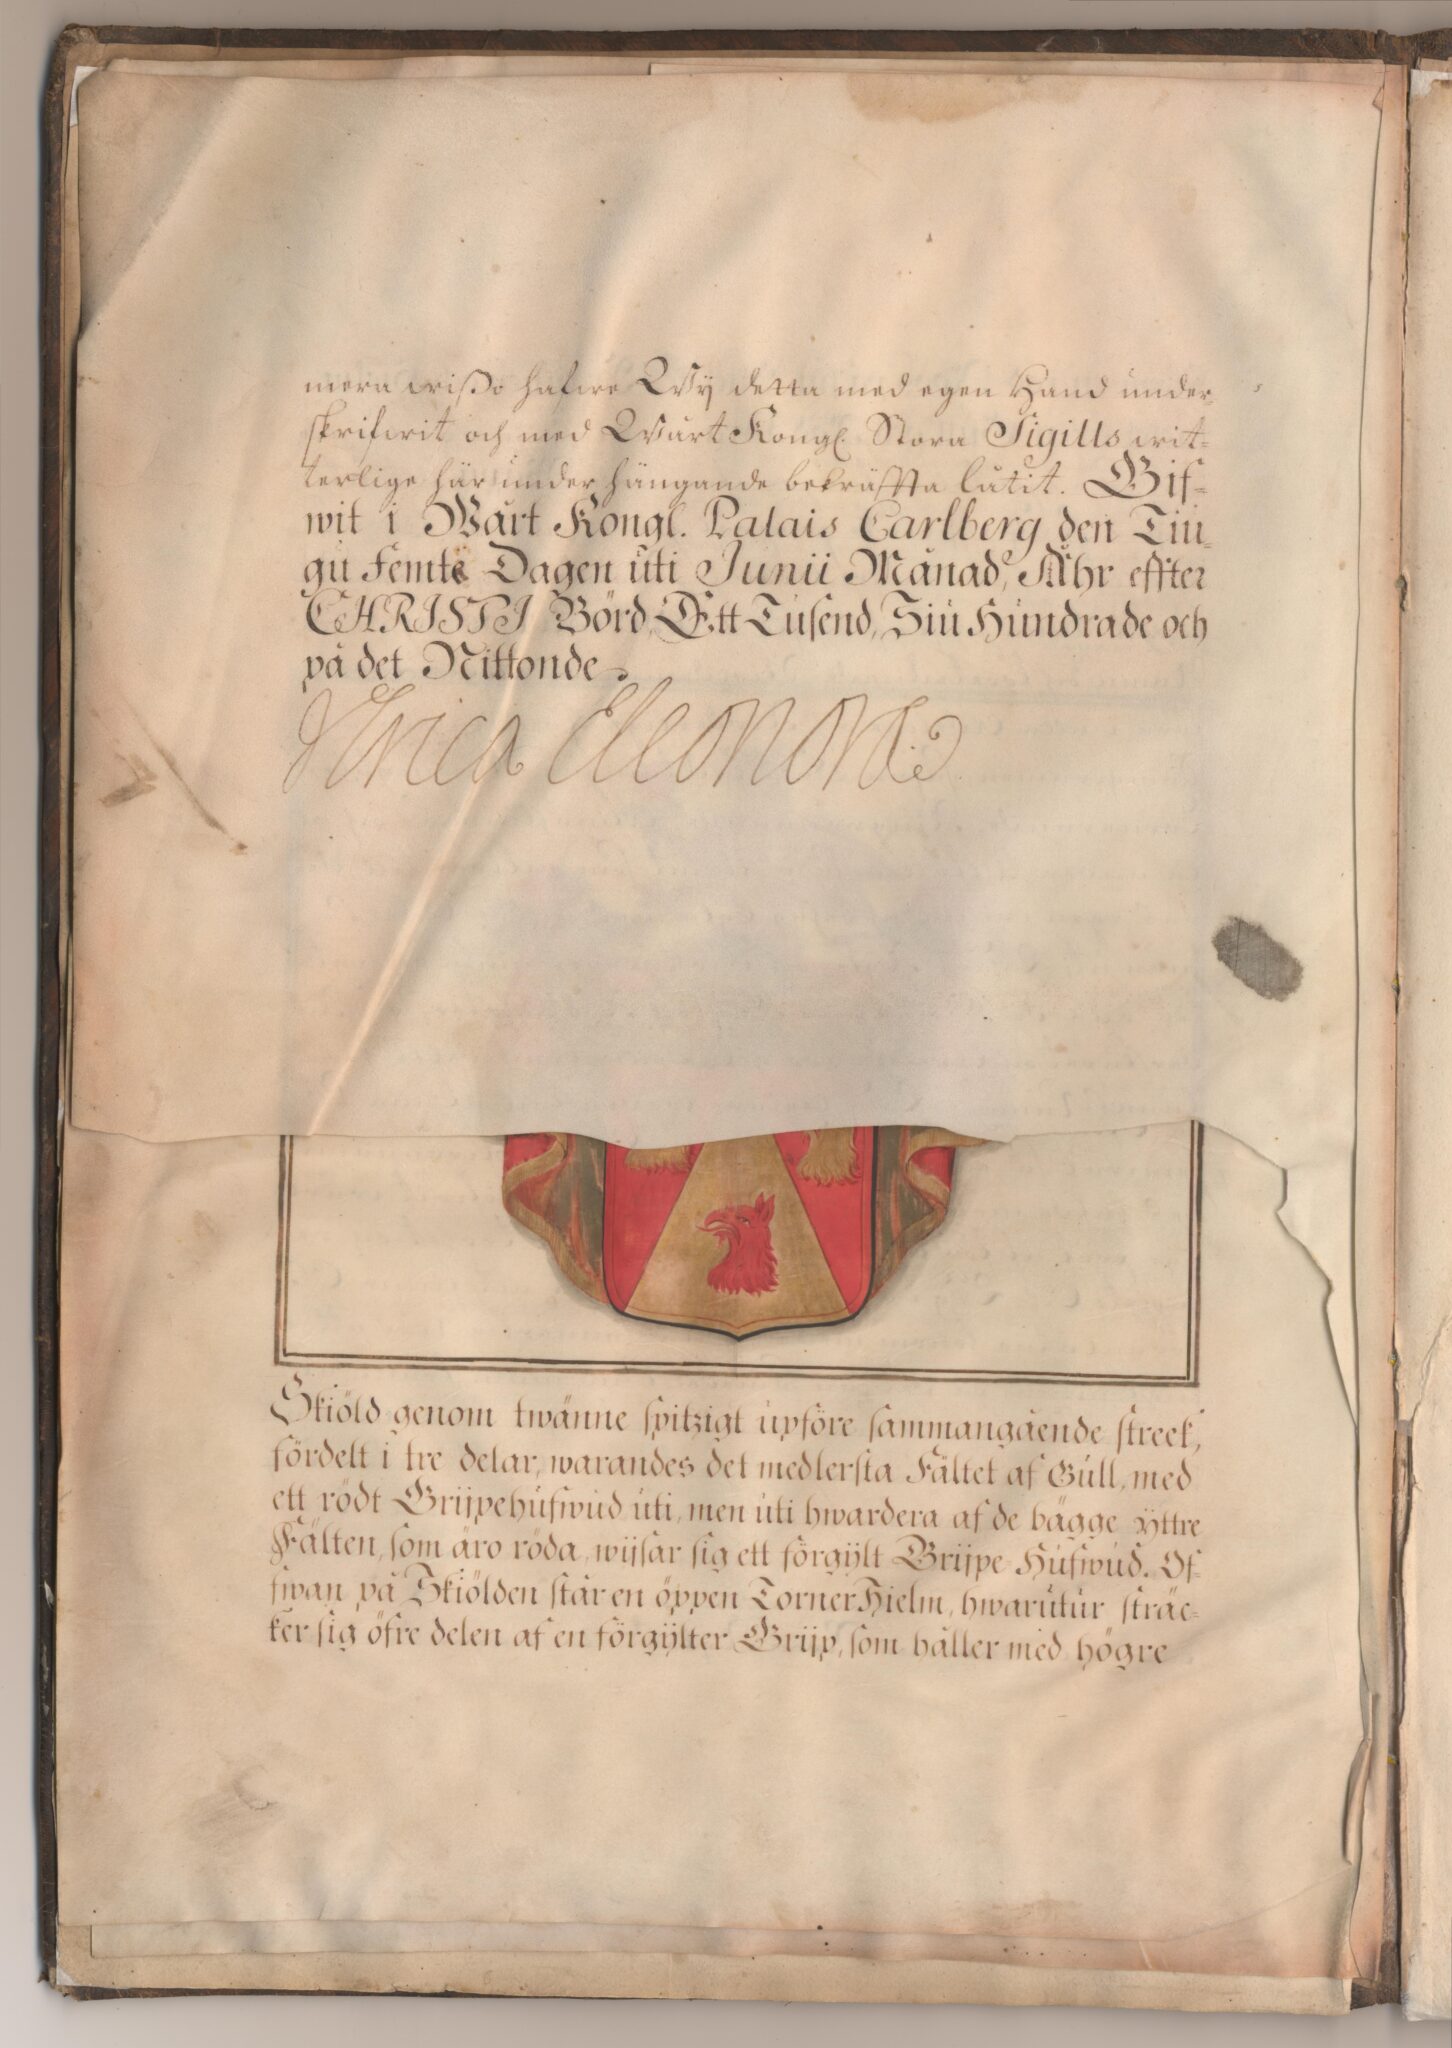 mera wißo hafwe Wÿ detta med egen Hand under-
skrifwit och med Wårt Kongl. Stora Sigills wit-
terlige här under hängande bekräffta låtit. Gif-
wit i Wårt Kongl. Palais Carlberg den Tiu-
gu Femte Dagen uti Junii Månad, Åhr effter
CHRISTI Börd, Ett Tusend, Siu Hundrade och
på det Nittonde.
Ulrica Eleonora
Skiöld genom twänne spitzigt upföre sammangående streek,
fördelt i tre delar, warandes det medlersta Fältet af Gull, med
ett rödt Grijpehufwud uti, men uti hwardera af de bägge yttre
Fälten, som äro röda, wijsar sig ett förgÿlt Grijpe Hufwud. Of-
fwan på Skiölden står en öppen TornerHielm, hwarutur sträc-
ker sig öfre delen af en förgÿlter Grijp, som håller med högre